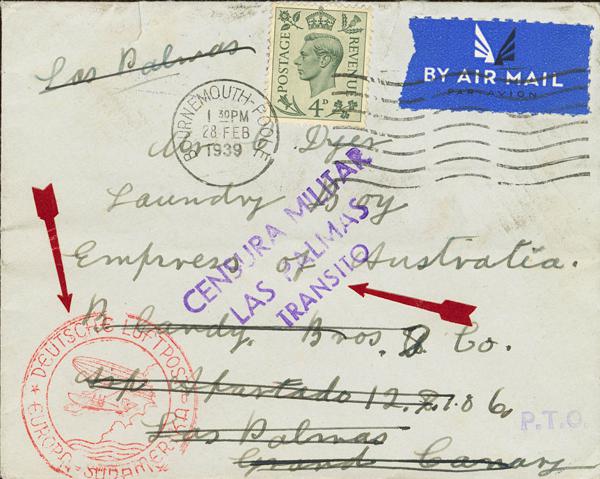 Las Palmas
POSTAGE
REVENUE
4D
BY AIR MAIL
PAR AVION
BOURNEMOUTH-POOLE
1 30PM
28 FEB
1939
Mr Dyer
Laundry Boy
Empress of Australia.
CENSURA MILITAR
LAS PALMAS
TRANSITO
Blandy. Bros. & Co.
Apartado
Las Palmas
Grand Canary
DEUTSCHE LUFTPOST
EUROPA-SÜDAMERIKA
P.T.O.